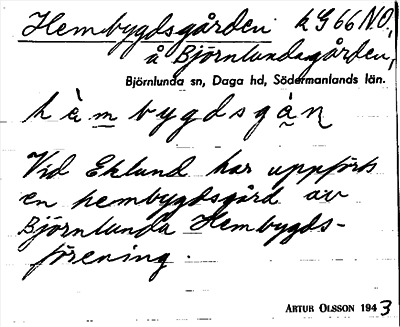 Hembygdsgården k G 66 N.O.
å Björnlundagården,
Björnlunda sn, Daga hd, Södermanlands län.
hèmbygdsgàn
Vid Eklund har uppförts
en hembygdsgård av
Björnlunda Hembygds-
förening.
ARTUR OLSSON 1943